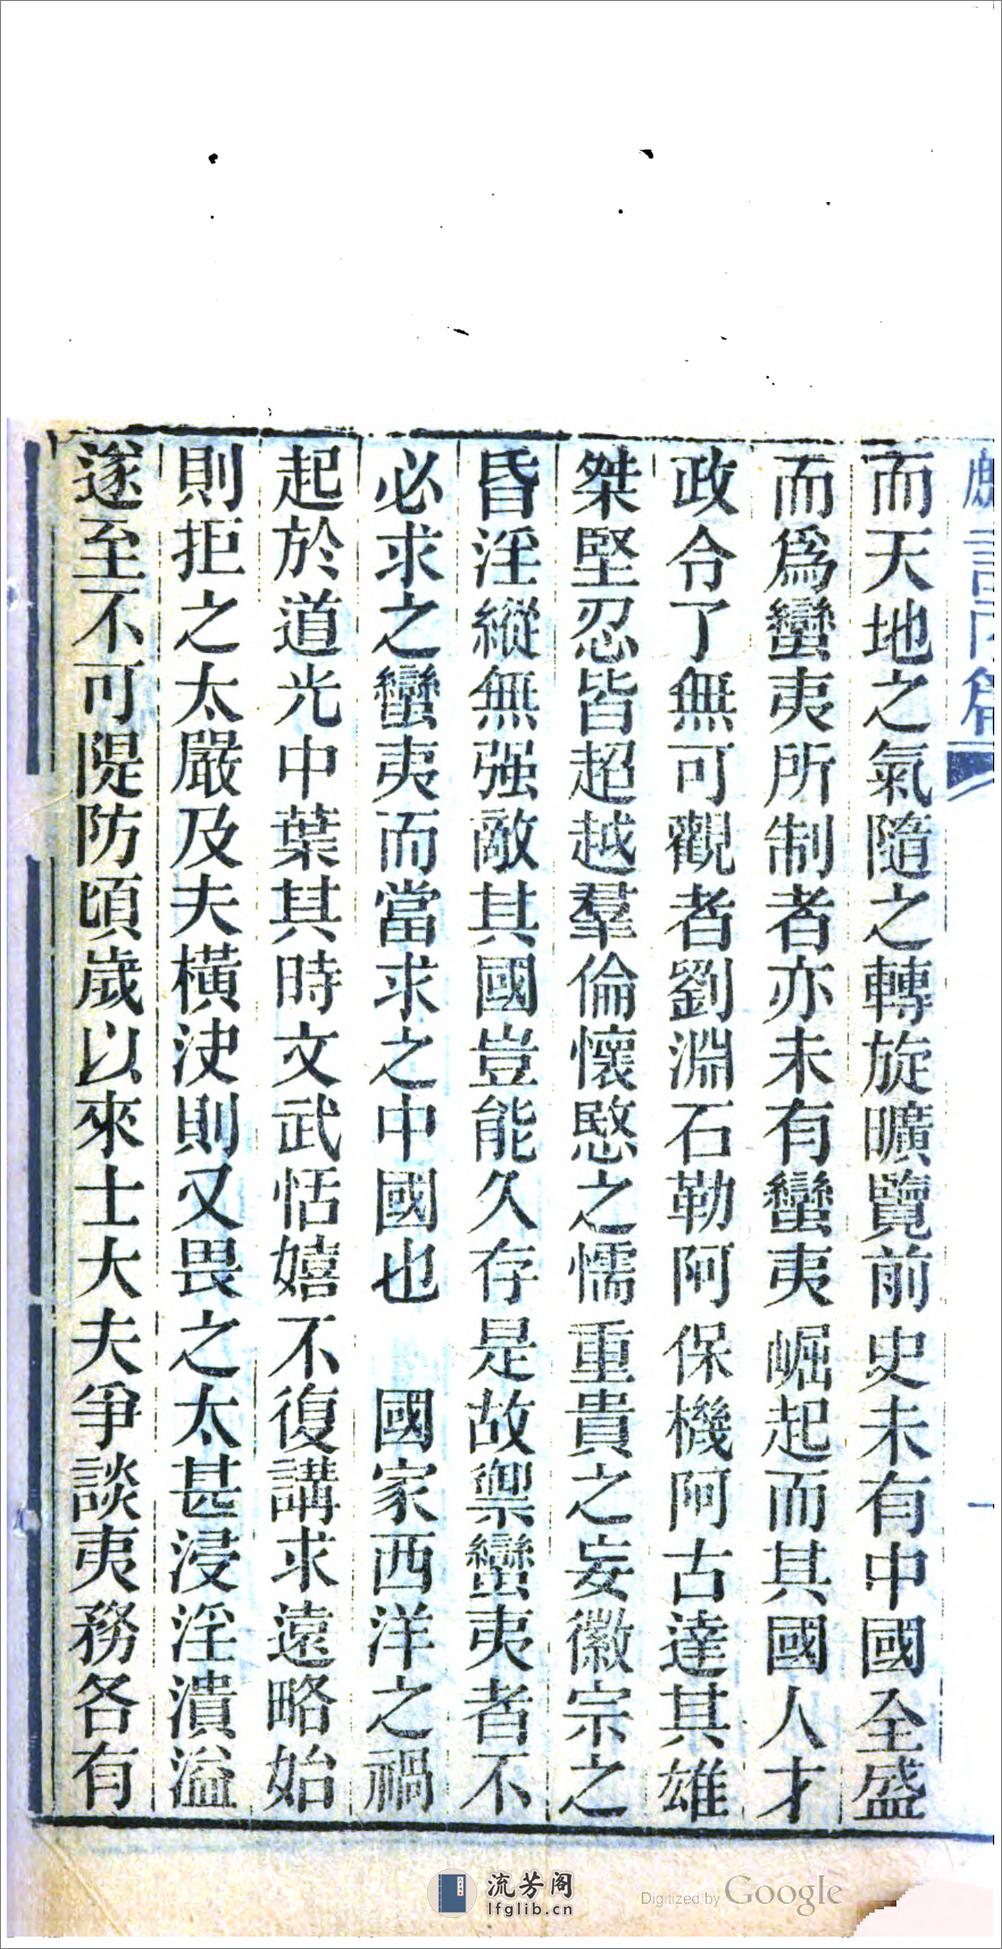 而天地之氣隨之轉旋曠覽前史未有中國全盛
而爲蠻夷所制者亦未有蠻夷崛起而其國人才
政令了無可觀者劉淵石勒阿保機阿古達其雄
桀堅忍皆超越羣倫懷愍之懦重貴之妄徽宗之
昏淫縱無强敵其國豈能久存是故禦蠻夷者不
必求之蠻夷而當求之中國也　國家西洋之禍
起於道光中葉其時文武恬嬉不復講求遠略始
則拒之太嚴及夫橫決則又畏之太甚浸淫潰溢
遂至不可隄防頃歲以來士大夫爭談夷務各有
流芳阁
lfglib.cn
Digitized by Google